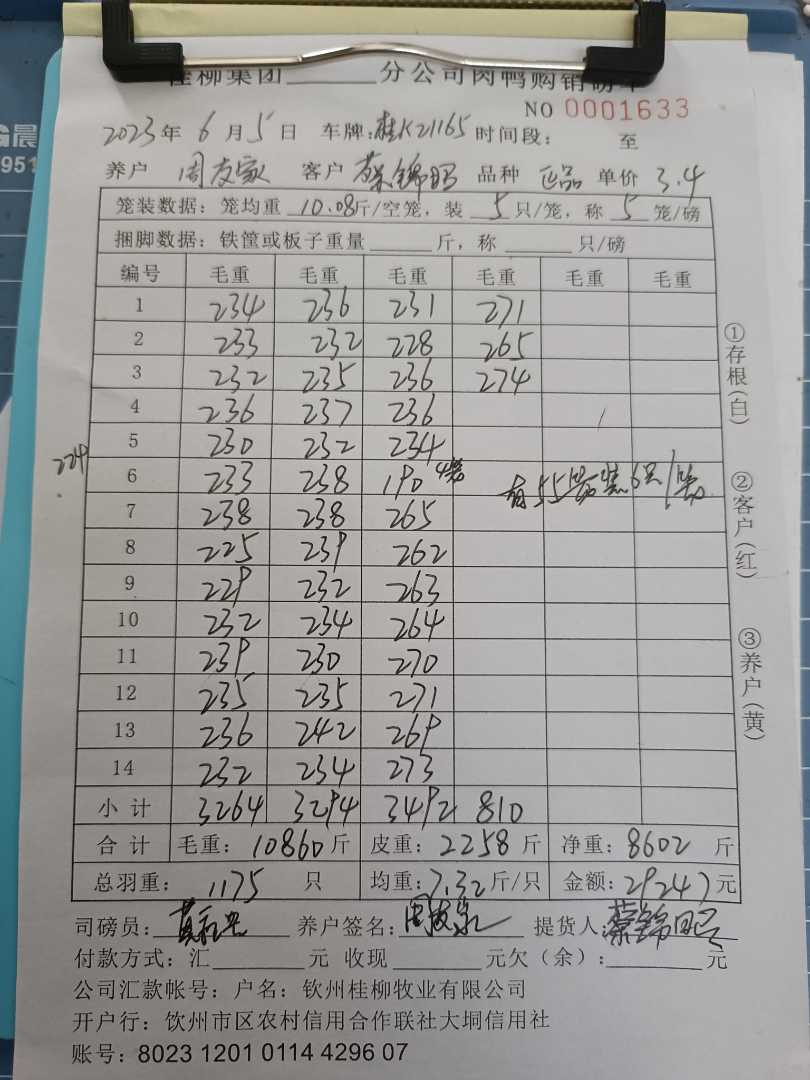 桂柳集团______分公司肉鸭购销磅单
NO 0001633
2023年 6月5日 车牌:桂K21165 时间段: 至
养户 周友家 客户 蔡锦昭 品种 正品 单价 3.4
笼装数据: 笼均重 10.08斤/空笼, 装 5 只/笼, 称 5 笼/磅
捆脚数据: 铁筐或板子重量______斤, 称______只/磅
编号 毛重 毛重 毛重 毛重 毛重 毛重
1 234 236 231 271
2 233 232 228 265
3 232 235 236 274
4 236 237 236
5 230 232 234
224
6 233 238 190 4笼 有55笼装6只/笼
7 238 238 265
8 225 239 262
9 229 232 263
10 232 234 264
11 239 230 270
12 235 235 271
13 236 242 269
14 232 234 273
小计 3264 3294 3492 810
合计 毛重: 10860斤 皮重: 2258斤 净重: 8602 斤
总羽重: 1175 只 均重: 7.32斤/只 金额: 29247元
司磅员: 养户签名: 周友家 提货人: 蔡锦昭
付款方式: 汇______元 收现______元欠(余):______元
公司汇款帐号: 户名: 钦州桂柳牧业有限公司
开户行: 饮州市区农村信用合作联社大垌信用社
账号: 8023 1201 0114 4296 07
①存根(白)
②客户(红)
③养户(黄)
晨
951